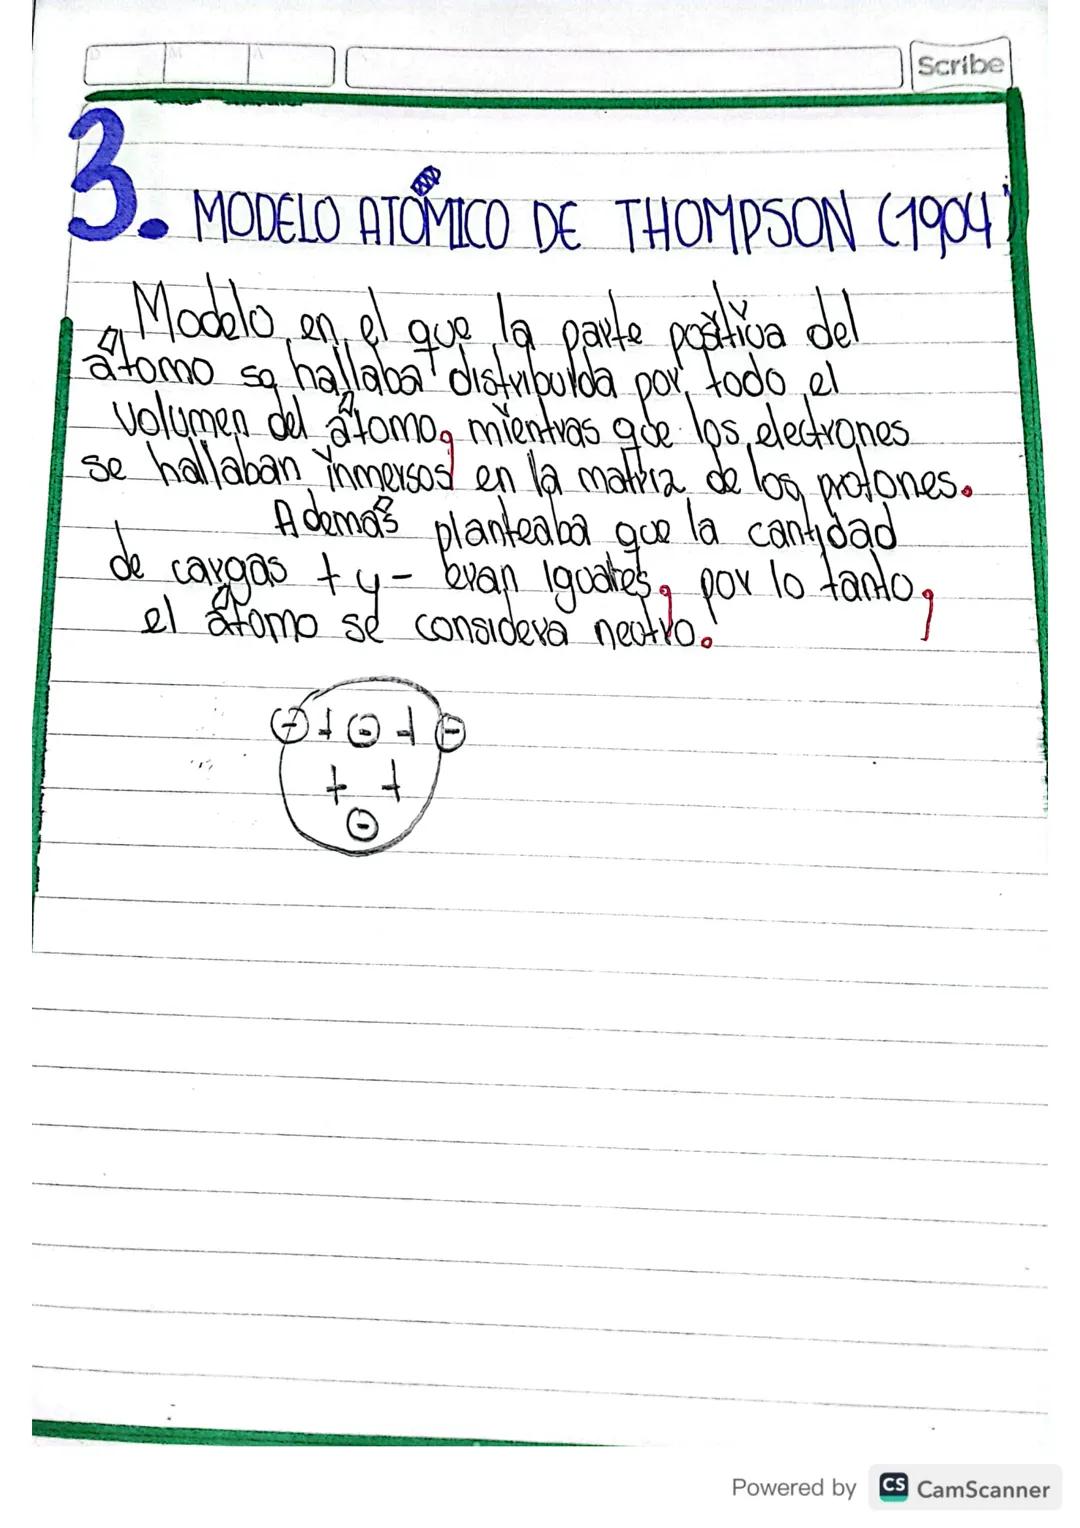 D M A Scribe
3. MODELO ATÓMICO DE THOMPSON (1904)
Modelo en el que la parte positiva del
átomo se hallaba distribuida por todo el
volumen del átomo, mientras que los electrones
se hallaban inmersos en la matriz de los protones.
Además planteaba que la cantidad
de cargas + y - eran iguales, por lo tanto,
el átomo se considera neutro.
- + - + -
+ +
-
Powered by CS CamScanner